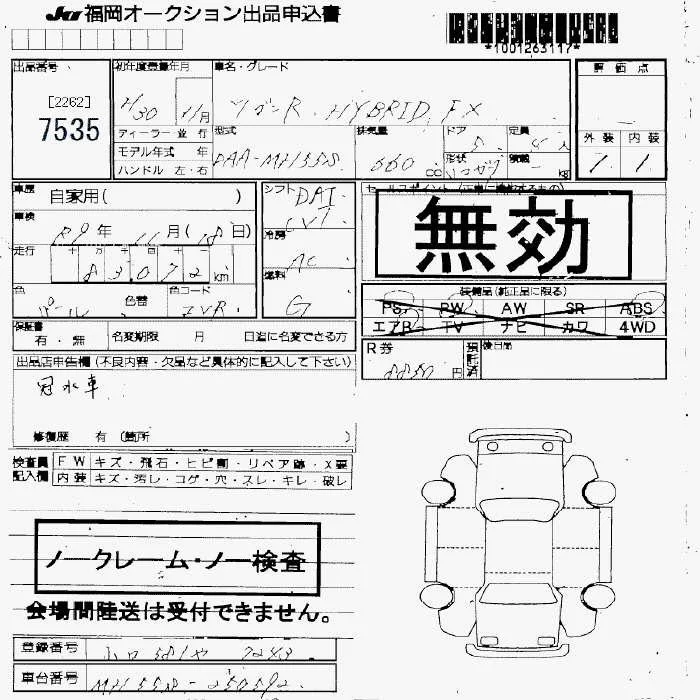 JU 福岡オークション出品申込書
*1001263117*
出品番号
[2262]
7535
初年度登録年月
H30 11月
車名・グレード
ワゴンR HYBRID FX
評価点
外装 内装
1 1
ディーラー 並行
モデル年式 年
ハンドル 左・右
型式
DAA-MH55S
排気量
660 cc
ドア
5
定員
4人
形状
積載
kg
車歴 自家用( )
車検
R9年11月18日
走行
十 万 千 百 十 一
83072 km
色
パール
色替
色コード
ZVR
シフト
DAT
CVT
冷房
AC
燃料
G
セールスポイント(正常に機能するもの)
無効
装備品(純正品に限る)
PS PW AW SR ABS
エアB TV ナビ カワ 4WD
保証書
有・無
名変期限 月 日迄に名変できる方
R券
8850円
預託済
後日品
出品店申告欄(不良内容・欠品など具体的に記入して下さい)
冠水車
修復歴 有 〔箇所 〕
検査員記入欄
FW キズ・飛石・ヒビ割・リペア跡・X要
内装 キズ・汚レ・コゲ・穴・スレ・キレ・破レ
ノークレーム・ノー検査
会場間陸送は受付できません。
登録番号
581
車台番号
MH55S-250592